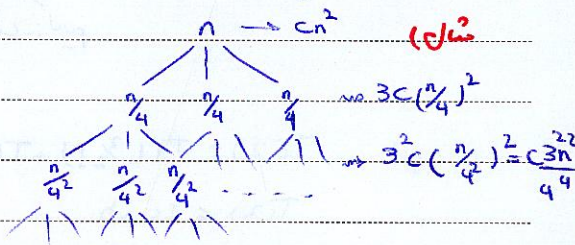 n → cn²
n/4 n/4 n/4 ⇝ 3c(n/4)²
n/4² n/4² n/4² ----- ⇝ 3²c(n/4²)² = c3²n²/4⁴